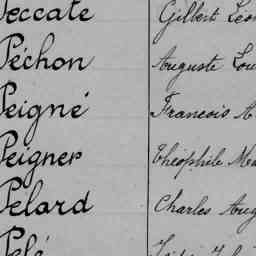 Peccate Gilbert Léon
Péchon Auguste Lou
Peigné Francois A
Peigner Théophile Ma
Pelard Charles Aug
Pelé